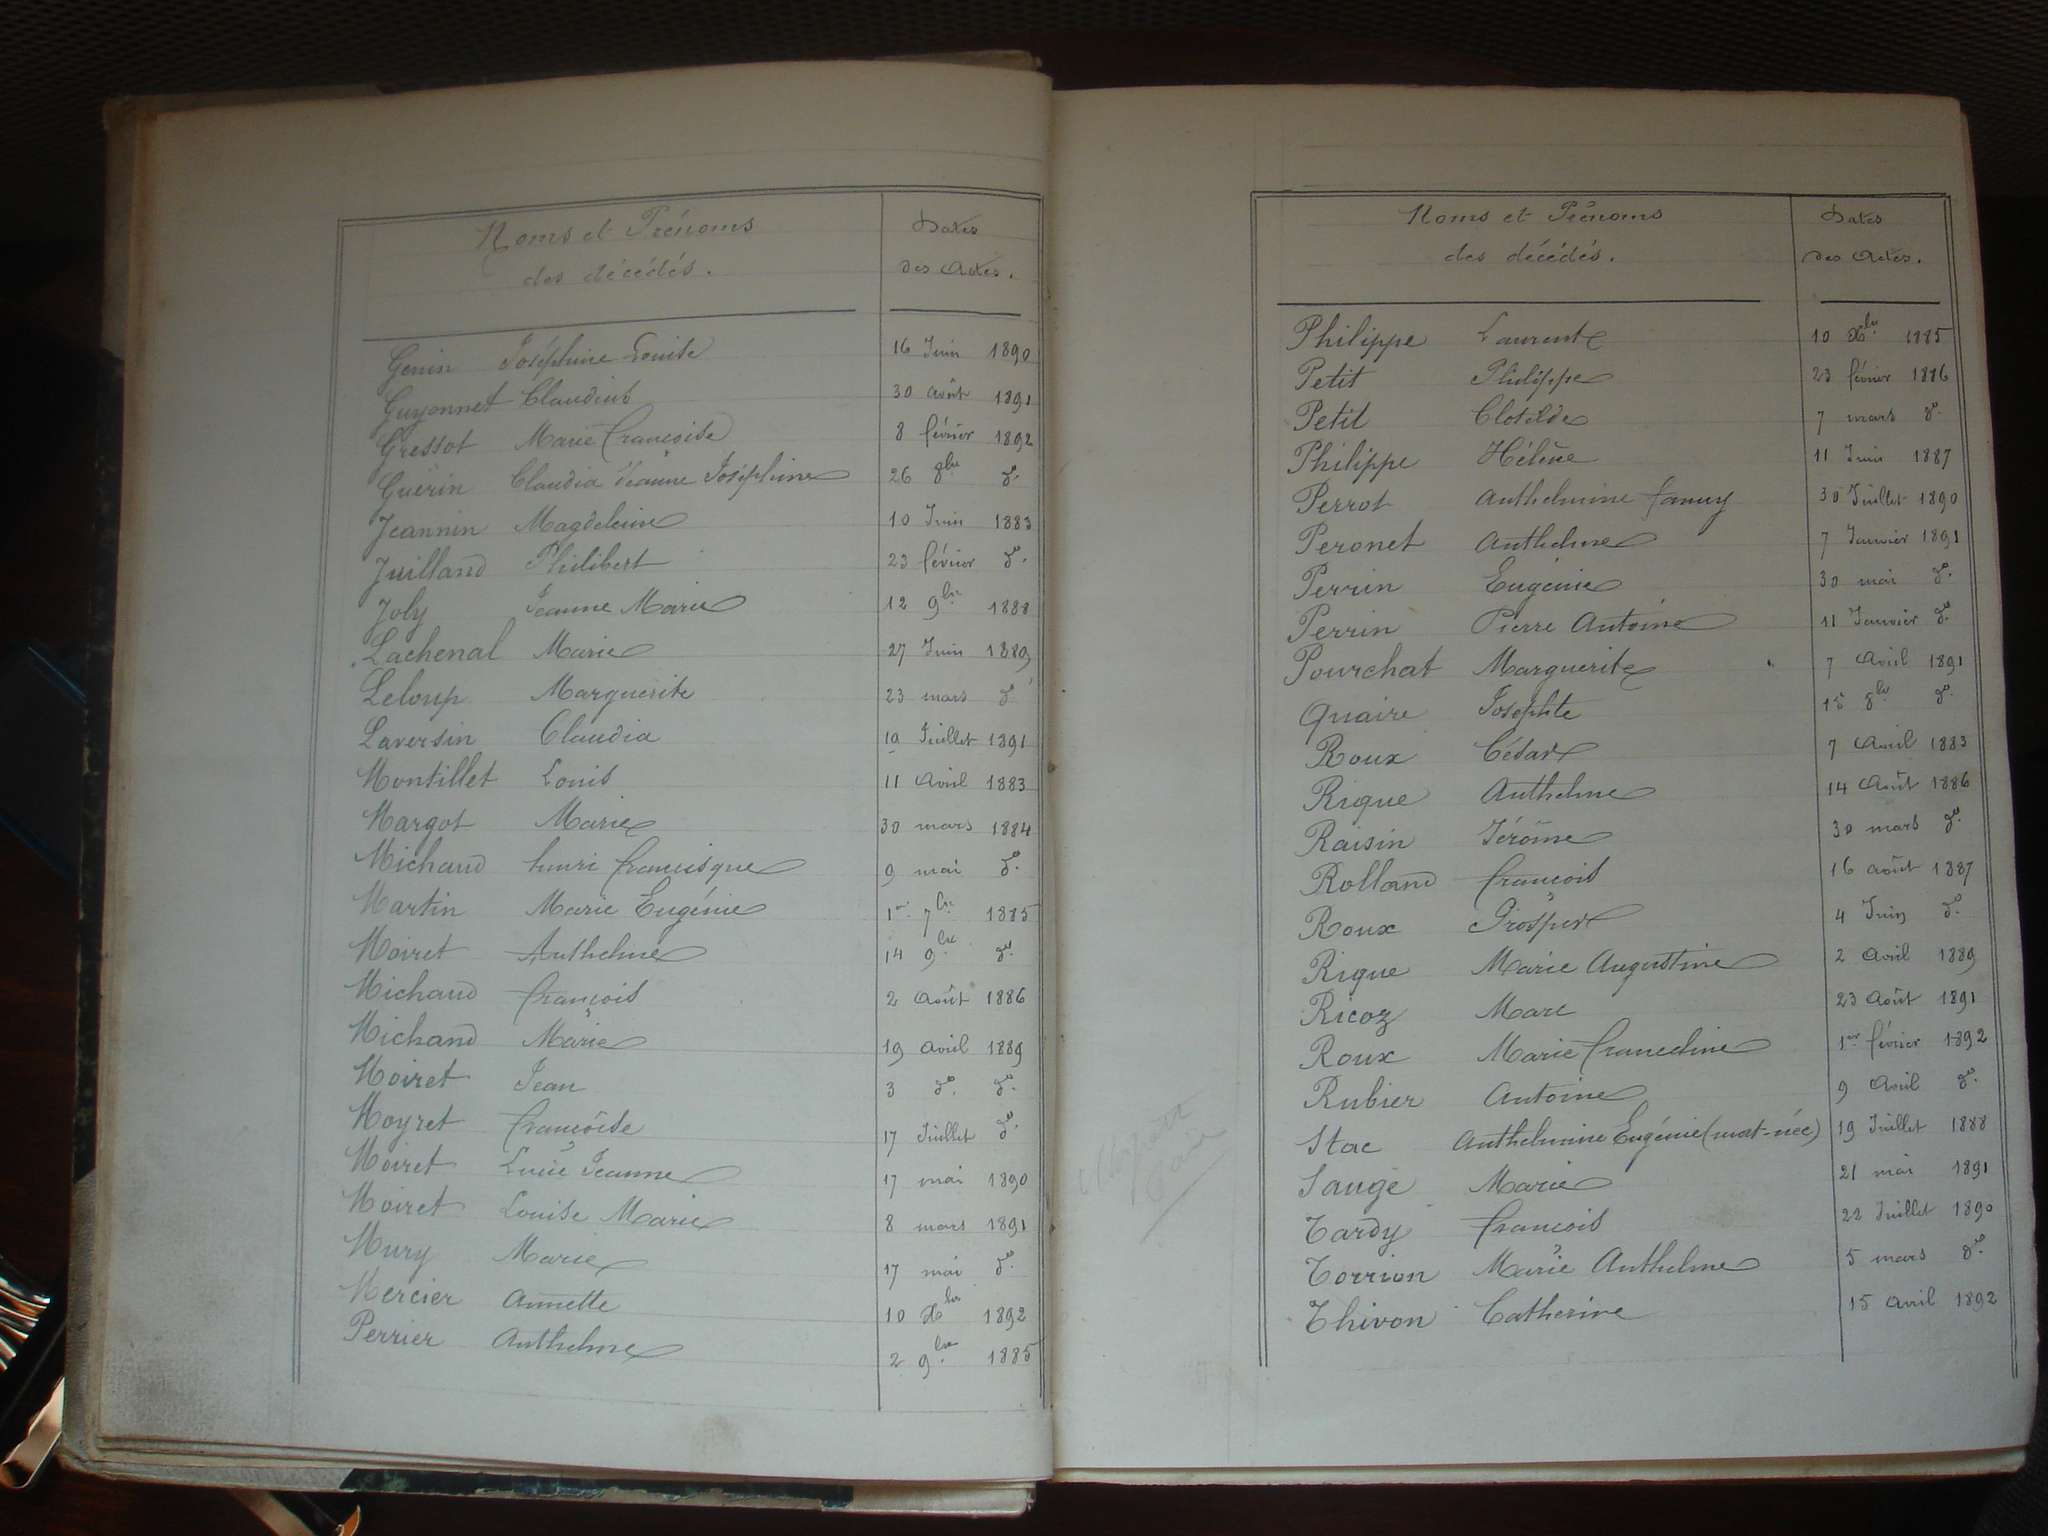 Noms et Prénoms
des décédés.
Dates
des Actes.
Genin Joséphine Louise 16 Juin 1890
Guyonnet Claudius 30 août 1891
Gressot Marie Françoise 8 février 1892
Guérin Claudia Jeanne Joséphine 26 8bre do.
Jeannin Magdeleine 10 Juin 1883
Juilland Philibert 23 février do.
Joly Jeanne Marie 12 9bre 1888
Lachenal Marie 27 Juin 1889
Leloup Marguerite 23 mars do
Laversin Claudia 10 Juillet 1891
Montillet Louis 11 Avril 1883
Margot Marie 30 mars 1884
Michaud henri francisque 9 mai do.
Martin Marie Eugénie 1er 7bre 1885
Moiret Anthelme 14 9bre do.
Michaud françois 2 Août 1886
Michaud Marie 19 avril 1889
Moiret Jean 3 do. do.
Moyret françoise 17 Juillet do.
Moiret Lucie Jeanne 17 mai 1890
Moiret Louise Marie 8 mars 1891
Mury Marie 17 mai do.
Mercier Annette 10 Xbre 1892
Perrier Anthelme 2 9bre 1885
Noms et Prénoms
des décédés.
Dates
des Actes.
Philippe Laurent 10 Xbre 1885
Petit Philippe 23 février 1886
Petit Clotilde 7 mars do.
Philippe Hélène 11 Juin 1887
Perrot Anthelmine fanny 30 Juillet 1890
Peronet Anthelme 7 Janvier 1891
Perrin Eugénie 30 mai do.
Perrin Pierre Antoine 11 Janvier do.
Pourchat Marguerite 7 Avril 1891
Quaire Josephte 15 8bre do.
Roux César 7 Avril 1883
Rique Anthelme 14 Août 1886
Raisin Jérôme 30 mars do.
Rolland françois 16 août 1887
Roux Prosper 4 Juin do.
Rique Marie Augustine 2 Avril 1889
Ricoz Marc 23 Août 1891
Roux Marie franceline 1er février 1892
Rubier Antoine 9 Avril do.
Stac Anthelmine Eugénie (mort-née) 19 Juillet 1888
Sauge Marie 21 mai 1891
Tardy françois 22 Juillet 1890
Torrion Marie Anthelme 5 mars do.
Thivon Catherine 15 avril 1892